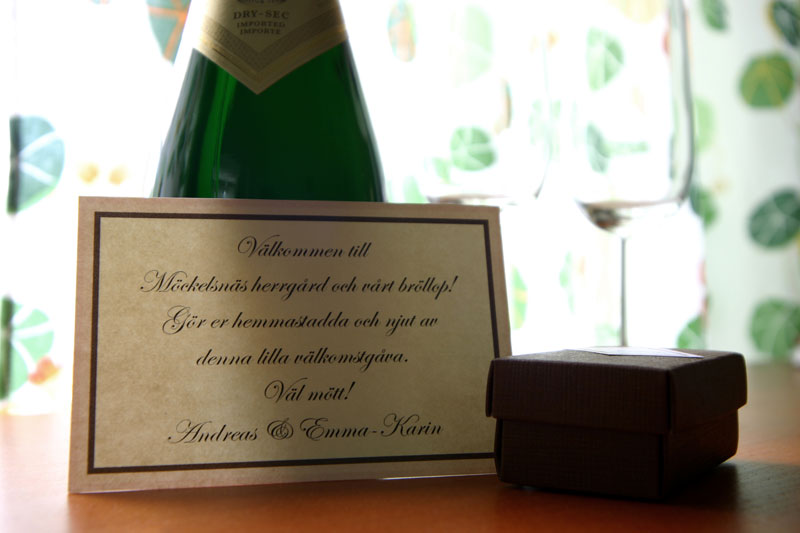 DRY-SEC
IMPORTED
IMPORTE
Välkommen till
Möckelsnäs herrgård och vårt bröllop!
Gör er hemmastadda och njut av
denna lilla välkomstgåva.
Väl mött!
Andreas & Emma-Karin